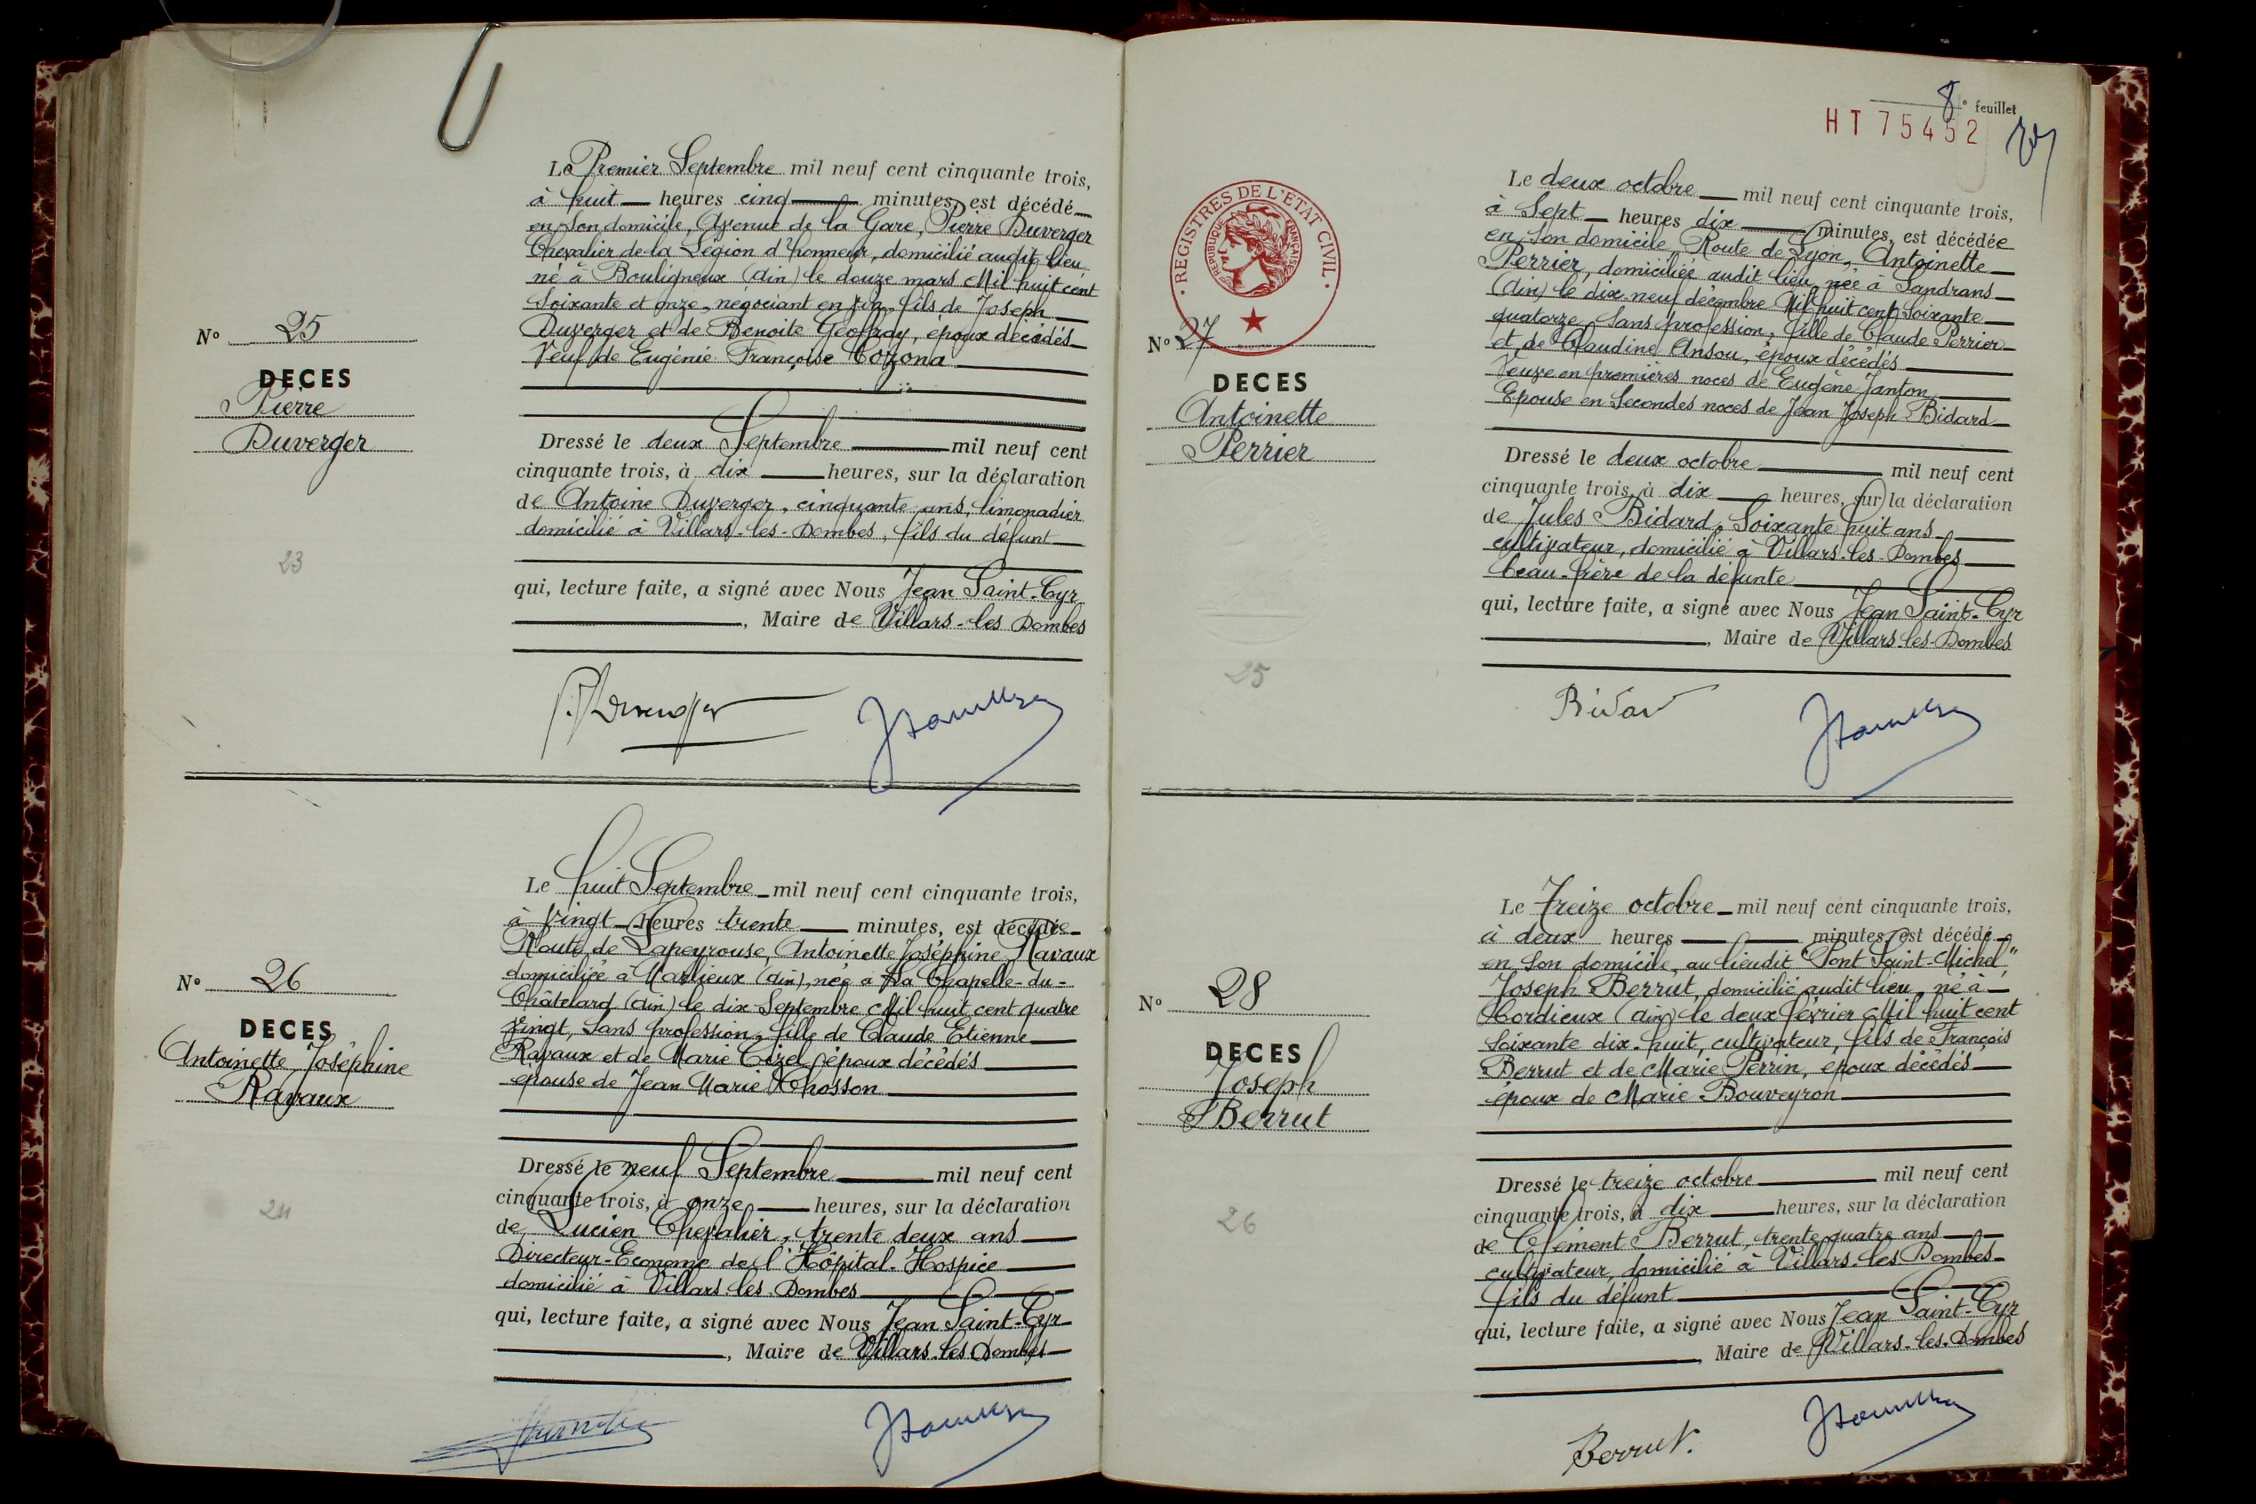 Le Premier Septembre mil neuf cent cinquante trois,
à huit heures cinq minutes, est décédé
en son domicile, Avenue de la Gare, Pierre Duverger
Chevalier de la Légion d'honneur, domicilié audit lieu
né à Bouligneux (Ain) le douze mars Mil huit cent
soixante et onze, negociant en vin, fils de Joseph
Duverger et de Benoite Geoffray, époux décédés
Veuf de Eugénie Françoise Cozona
N° 25
DECES
Pierre
Duverger
Dressé le deux Septembre mil neuf cent
cinquante trois, à dix heures, sur la déclaration
de Antoine Duverger, cinquante ans, limonadier
domicilié à Villars-les-Dombes, fils du défunt
23
qui, lecture faite, a signé avec Nous Jean Saint-Cyr
, Maire de Villars-les Dombes
Le huit Septembre mil neuf cent cinquante trois,
à vingt heures trente minutes, est décédée
Route de Lapeyrouse, Antoinette Joséphine Ravaux
domiciliée à Marlieux (Ain), née à La Chapelle-du-
Châtelard (Ain) le dix Septembre Mil huit cent quatre
vingt, sans profession, fille de Claude Etienne
Ravaux et de Marie Cizel, époux décédés
épouse de Jean Marie Chosson
N° 26
DECES
Antoinette Joséphine
Ravaux
Dressé le neuf Septembre mil neuf cent
cinquante trois, à onze heures, sur la déclaration
de Lucien Chevalier, trente deux ans
Directeur-Econome de l'Hôpital-Hospice
domicilié à Villars les Dombes
24
qui, lecture faite, a signé avec Nous Jean Saint-Cyr
, Maire de Villars-les Dombes
8e feuillet
HT 75452
REGISTRES DE L'ETAT CIVIL
REPUBLIQUE FRANÇAISE
Le deux octobre mil neuf cent cinquante trois,
à Sept heures dix minutes, est décédée
en son domicile Route de Lyon, Antoinette
Perrier, domiciliée audit lieu, née à Sandrans
(Ain) le dix neuf décembre Mil huit cent soixante
quatorze, sans profession, fille de Claude Perrier
et de Claudine Ansou, époux décédés
Veuve en premières noces de Eugène Janton
Epouse en Secondes noces de Jean Joseph Bidard
N° 27
DECES
Antoinette
Perrier
Dressé le deux octobre mil neuf cent
cinquante trois, à dix heures, sur la déclaration
de Jules Bidard, Soixante huit ans
cultivateur, domicilié à Villars-les-Dombes
beau-frère de la défunte
25
qui, lecture faite, a signé avec Nous Jean Saint-Cyr
, Maire de Villars-les-Dombes
Bidar
Le treize octobre mil neuf cent cinquante trois,
à deux heures minutes, est décédé
en son domicile, au lieudit "Pont Saint-Michel"
Joseph Berrut, domicilié audit lieu, né à
Cordieux (Ain) le deux février Mil huit cent
soixante dix-huit, cultivateur, fils de François
Berrut et de Marie Perrin, époux décédés
époux de Marie Bouveyron
N° 28
DECES
Joseph
Berrut
Dressé le treize octobre mil neuf cent
cinquante trois, à dix heures, sur la déclaration
de Clément Berrut, trente quatre ans
cultivateur, domicilié à Villars-les Dombes
fils du défunt
26
qui, lecture faite, a signé avec Nous Jean Saint-Cyr
, Maire de Villars-les-Dombes
Berrut.